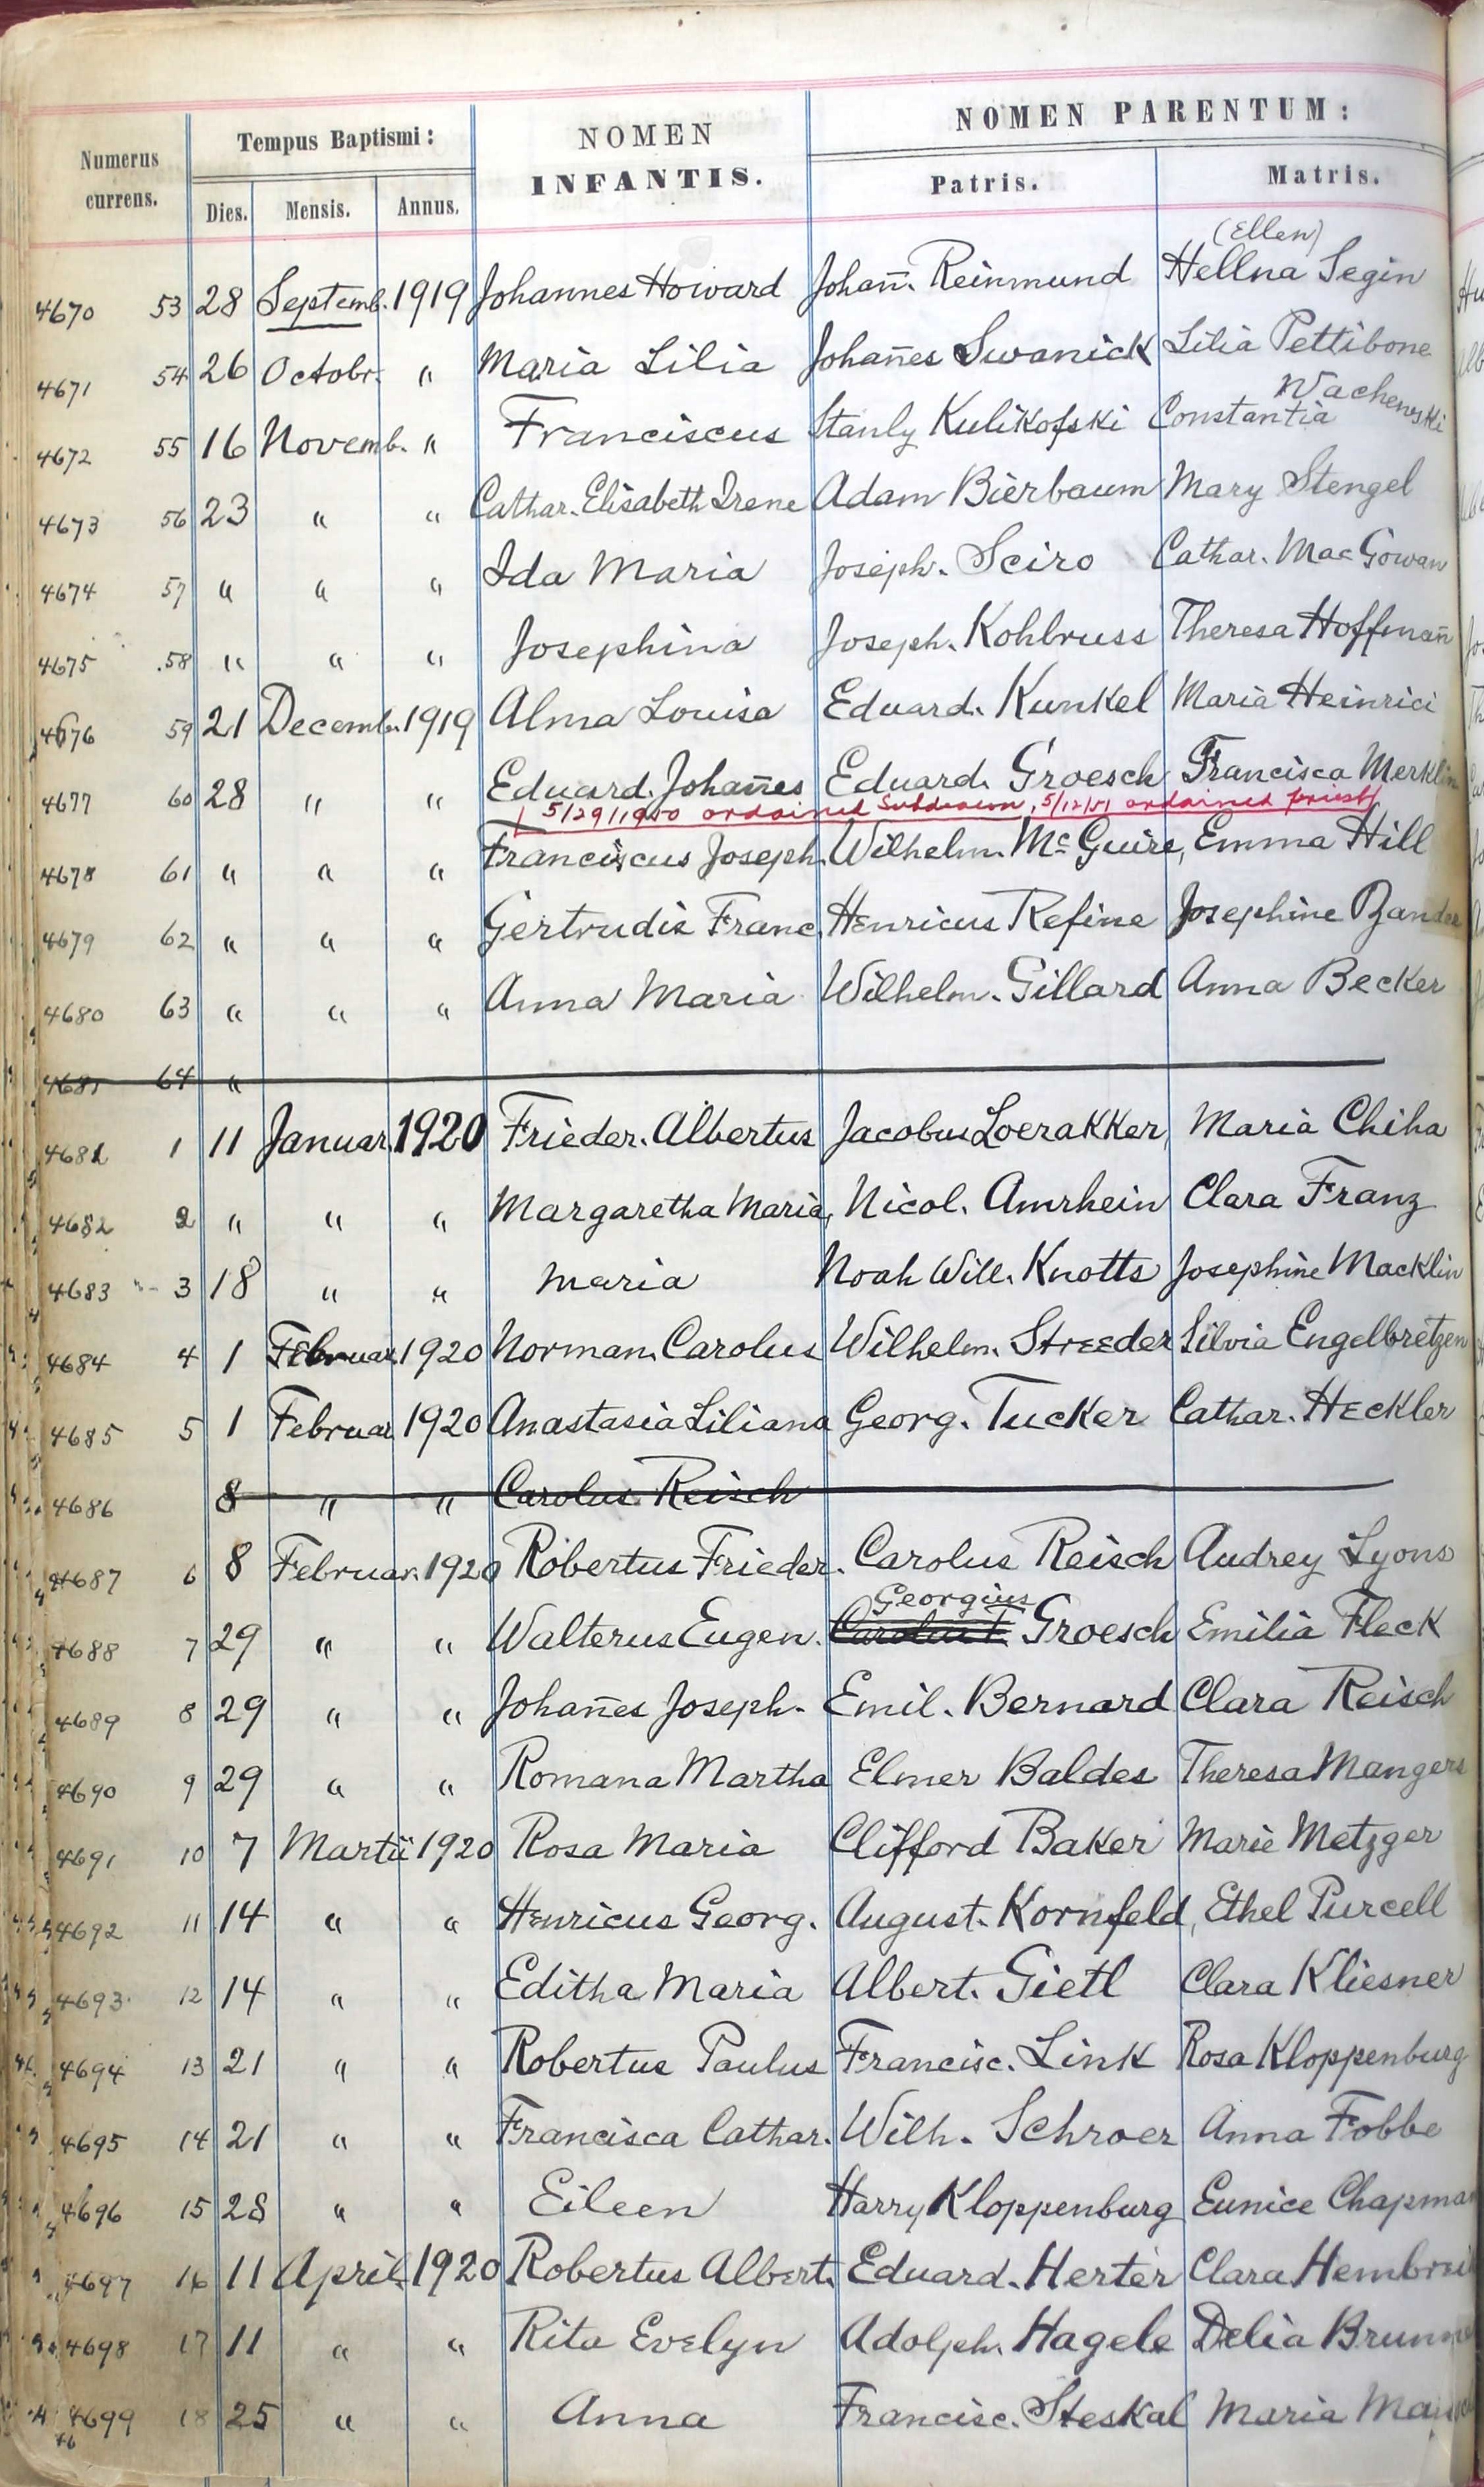 Numerus currens. Tempus Baptismi: NOMEN INFANTIS. NOMEN PARENTUM:
Dies. Mensis. Annus. Patris. Matris.
(Ellen)
4670 53 28 Septemb. 1919 Johannes Howard Johan̄. Reinmund Hellna Segin
4671 54 26 Octobr. " Maria Lilia Johan̄es Swanick Lilia Pettibone
Wachewski
4672 55 16 Novemb. " Franciscus Stanly Kulikofski Constantia
4673 56 23 " " Cathar. Elisabeth Irene Adam Bierbaum Mary Stengel
4674 57 " " " Ida Maria Joseph. Sciro Cathar. MacGowan
4675 58 " " " Josephina Joseph. Kohlbruss Theresa Hoffman̄
4676 59 21 Decemb. 1919 Alma Louisa Eduard. Kunkel Maria Heinrici
4677 60 28 " " Eduard. Johan̄es Eduard. Groesch Francisca Merklin
5/29/1950 ordained Subdeacon, 5/12/51 ordained priest
4678 61 " " " Franciscus Joseph. Wilhelm. McGuire, Emma Hill
4679 62 " " " Gertrudis Franc. Henricus Refine Josephine
4680 63 " " " Anna Maria Wilhelm. Gillard Anna Becker
4681 64 "
4681 1 11 Januar. 1920 Frieder. Albertus Jacobus Loerakker, Maria Chiha
4682 2 " " " Margaretha Maria, Nicol. Amrhein Clara Franz
4683 3 18 " " Maria Noah Will. Knotts Josephine Macklin
4684 4 1 Februar. 1920 Norman. Carolus Wilhelm. Streeder Silvia Engelbretzen
4685 5 1 Februar 1920 Anastasia Liliana Georg. Tucker Cathar. Heckler
4686 8 " " Carolus Reisch
4687 6 8 Februar. 1920 Robertus Frieder. Carolus Reisch Audrey Lyons
Georgius
4688 7 29 " " Walterus Eugen. Groesch Emilia Fleck
4689 8 29 " " Johan̄es Joseph. Emil. Bernard Clara Reisch
4690 9 29 " " Romana Martha Elmer Baldes Theresa Mangers
4691 10 7 Martii 1920 Rosa Maria Clifford Baker Marie Metzger
4692 11 14 " " Henricus Georg. August. Kornfeld, Ethel Purcell
4693 12 14 " " Editha Maria Albert. Gietl Clara Kliesner
4694 13 21 " " Robertus Paulus Francisc. Link Rosa Kloppenburg
4695 14 21 " " Francisca Cathar. Wilh. Schroer Anna Fobbe
4696 15 28 " " Eileen Harry Kloppenburg Eunice Chapman
4697 16 11 April. 1920 Robertus Albert. Eduard. Herter Clara
4698 17 11 " " Rita Evelyn Adolph. Hagele Delia
4699 18 25 " " Anna Francisc. Steskal Maria